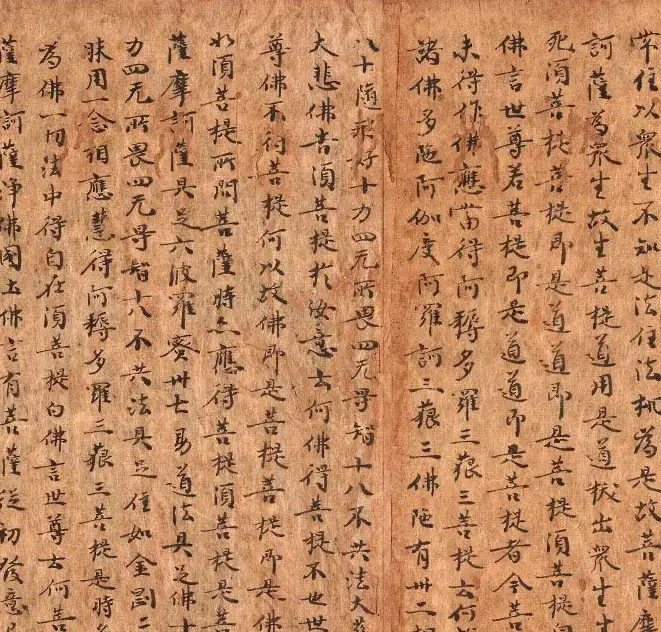 常住以衆生不知是法住法相為是故菩薩摩
訶薩為衆生故生菩提道用是道拔出衆生生
死須菩提菩提即是道道即是菩提須菩提白
佛言世尊若菩提即是道道即是菩提者今菩
未得作佛應當得阿耨多羅三藐三菩提云何
諸佛多陁阿伽度阿羅訶三藐三佛陁有卅二相
八十随形好十力四无所畏四无㝵智十八不共法大慈
大悲佛告須菩提於汝意云何佛得菩提不也世
尊佛不得菩提何以故佛即是菩提菩提即是佛
如須菩提所問菩薩時亦應得菩提須菩提是
薩摩訶薩具足六波羅蜜卅七助道法具足佛十
力四无所畏四无㝵智十八不共法具足住如金剛三
昧用一念相應慧得阿耨多羅三藐三菩提是時名
為佛一切法中得自在須菩提白佛言世尊云何菩
薩摩訶薩淨佛國土佛言有菩薩從初發意